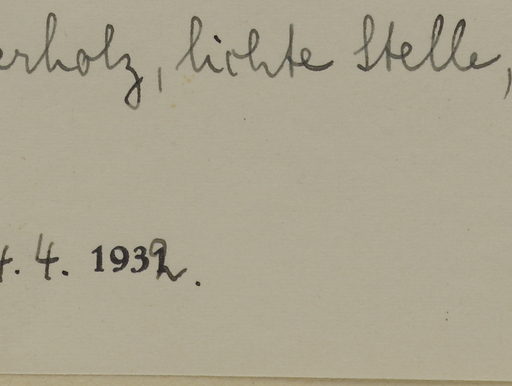 erholz, lichte Stelle,
4. 4. 1932.